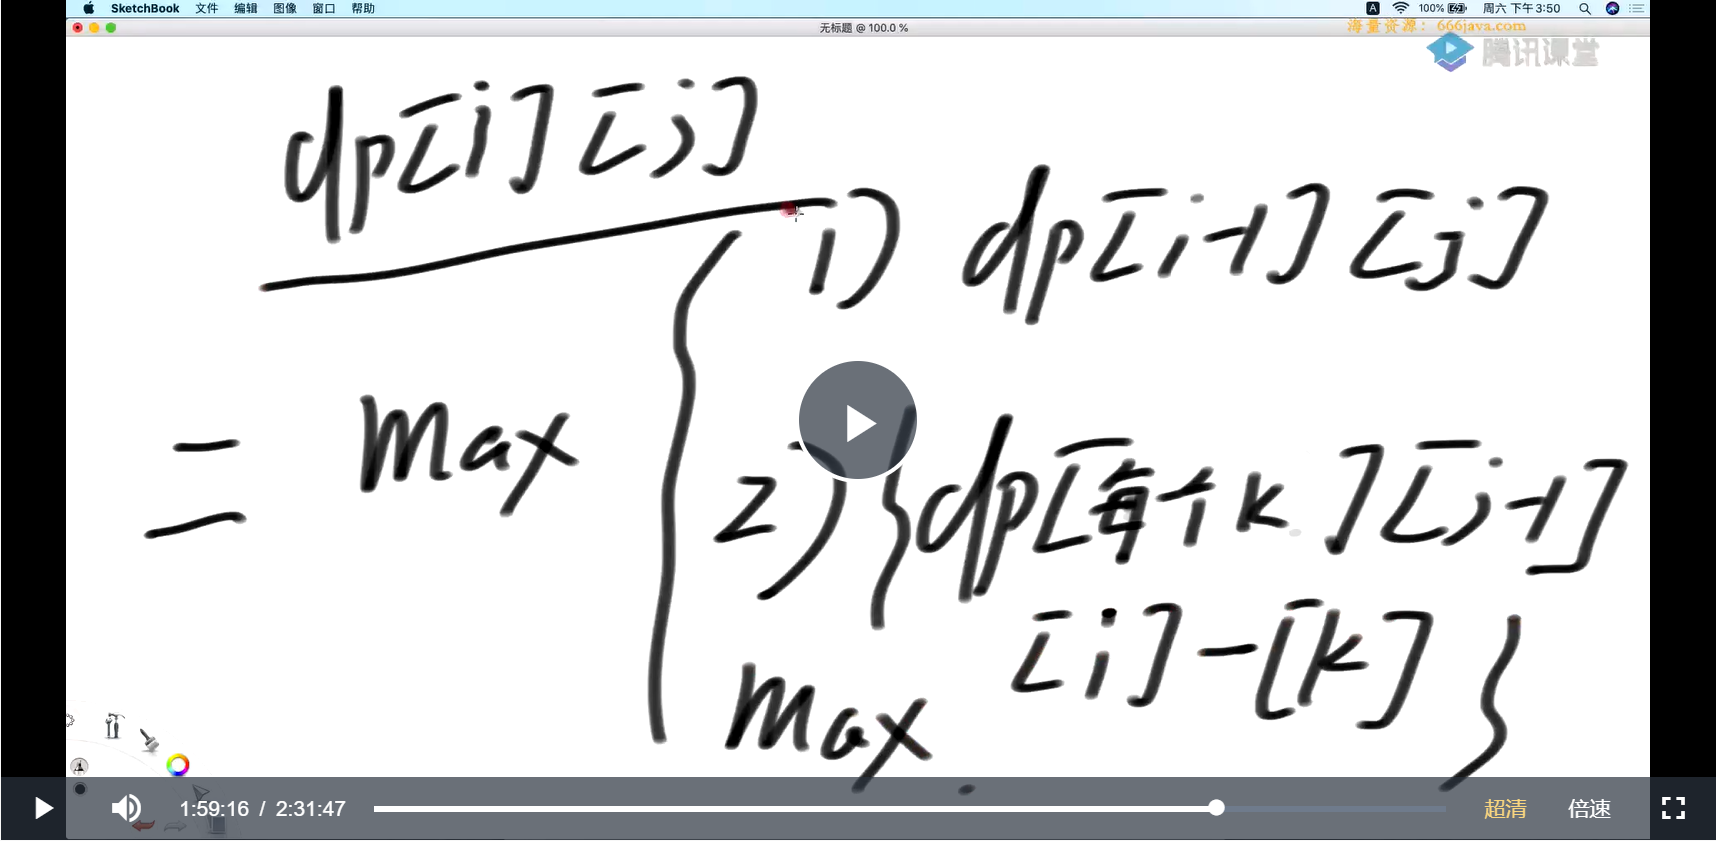 SketchBook 文件 编辑 图像 窗口 帮助 A 100% 周六 下午3:50
无标题 @ 100.0 %
海量资源：666java.com
腾讯课堂
dp[i][j]
1) dp[i-1][j]
= max
2) {dp[每个k][j-1]
[i]-[k]}
max
1:59:16 / 2:31:47 超清 倍速